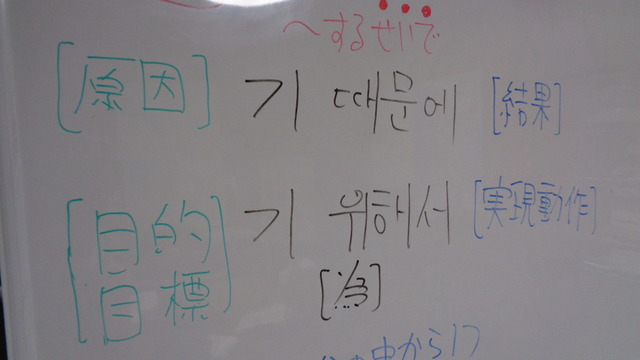 ～するせいで
[原因] 기 때문에 [結果]
[目的 기 위해서 [実現動作]
目標]
[為]
の中から